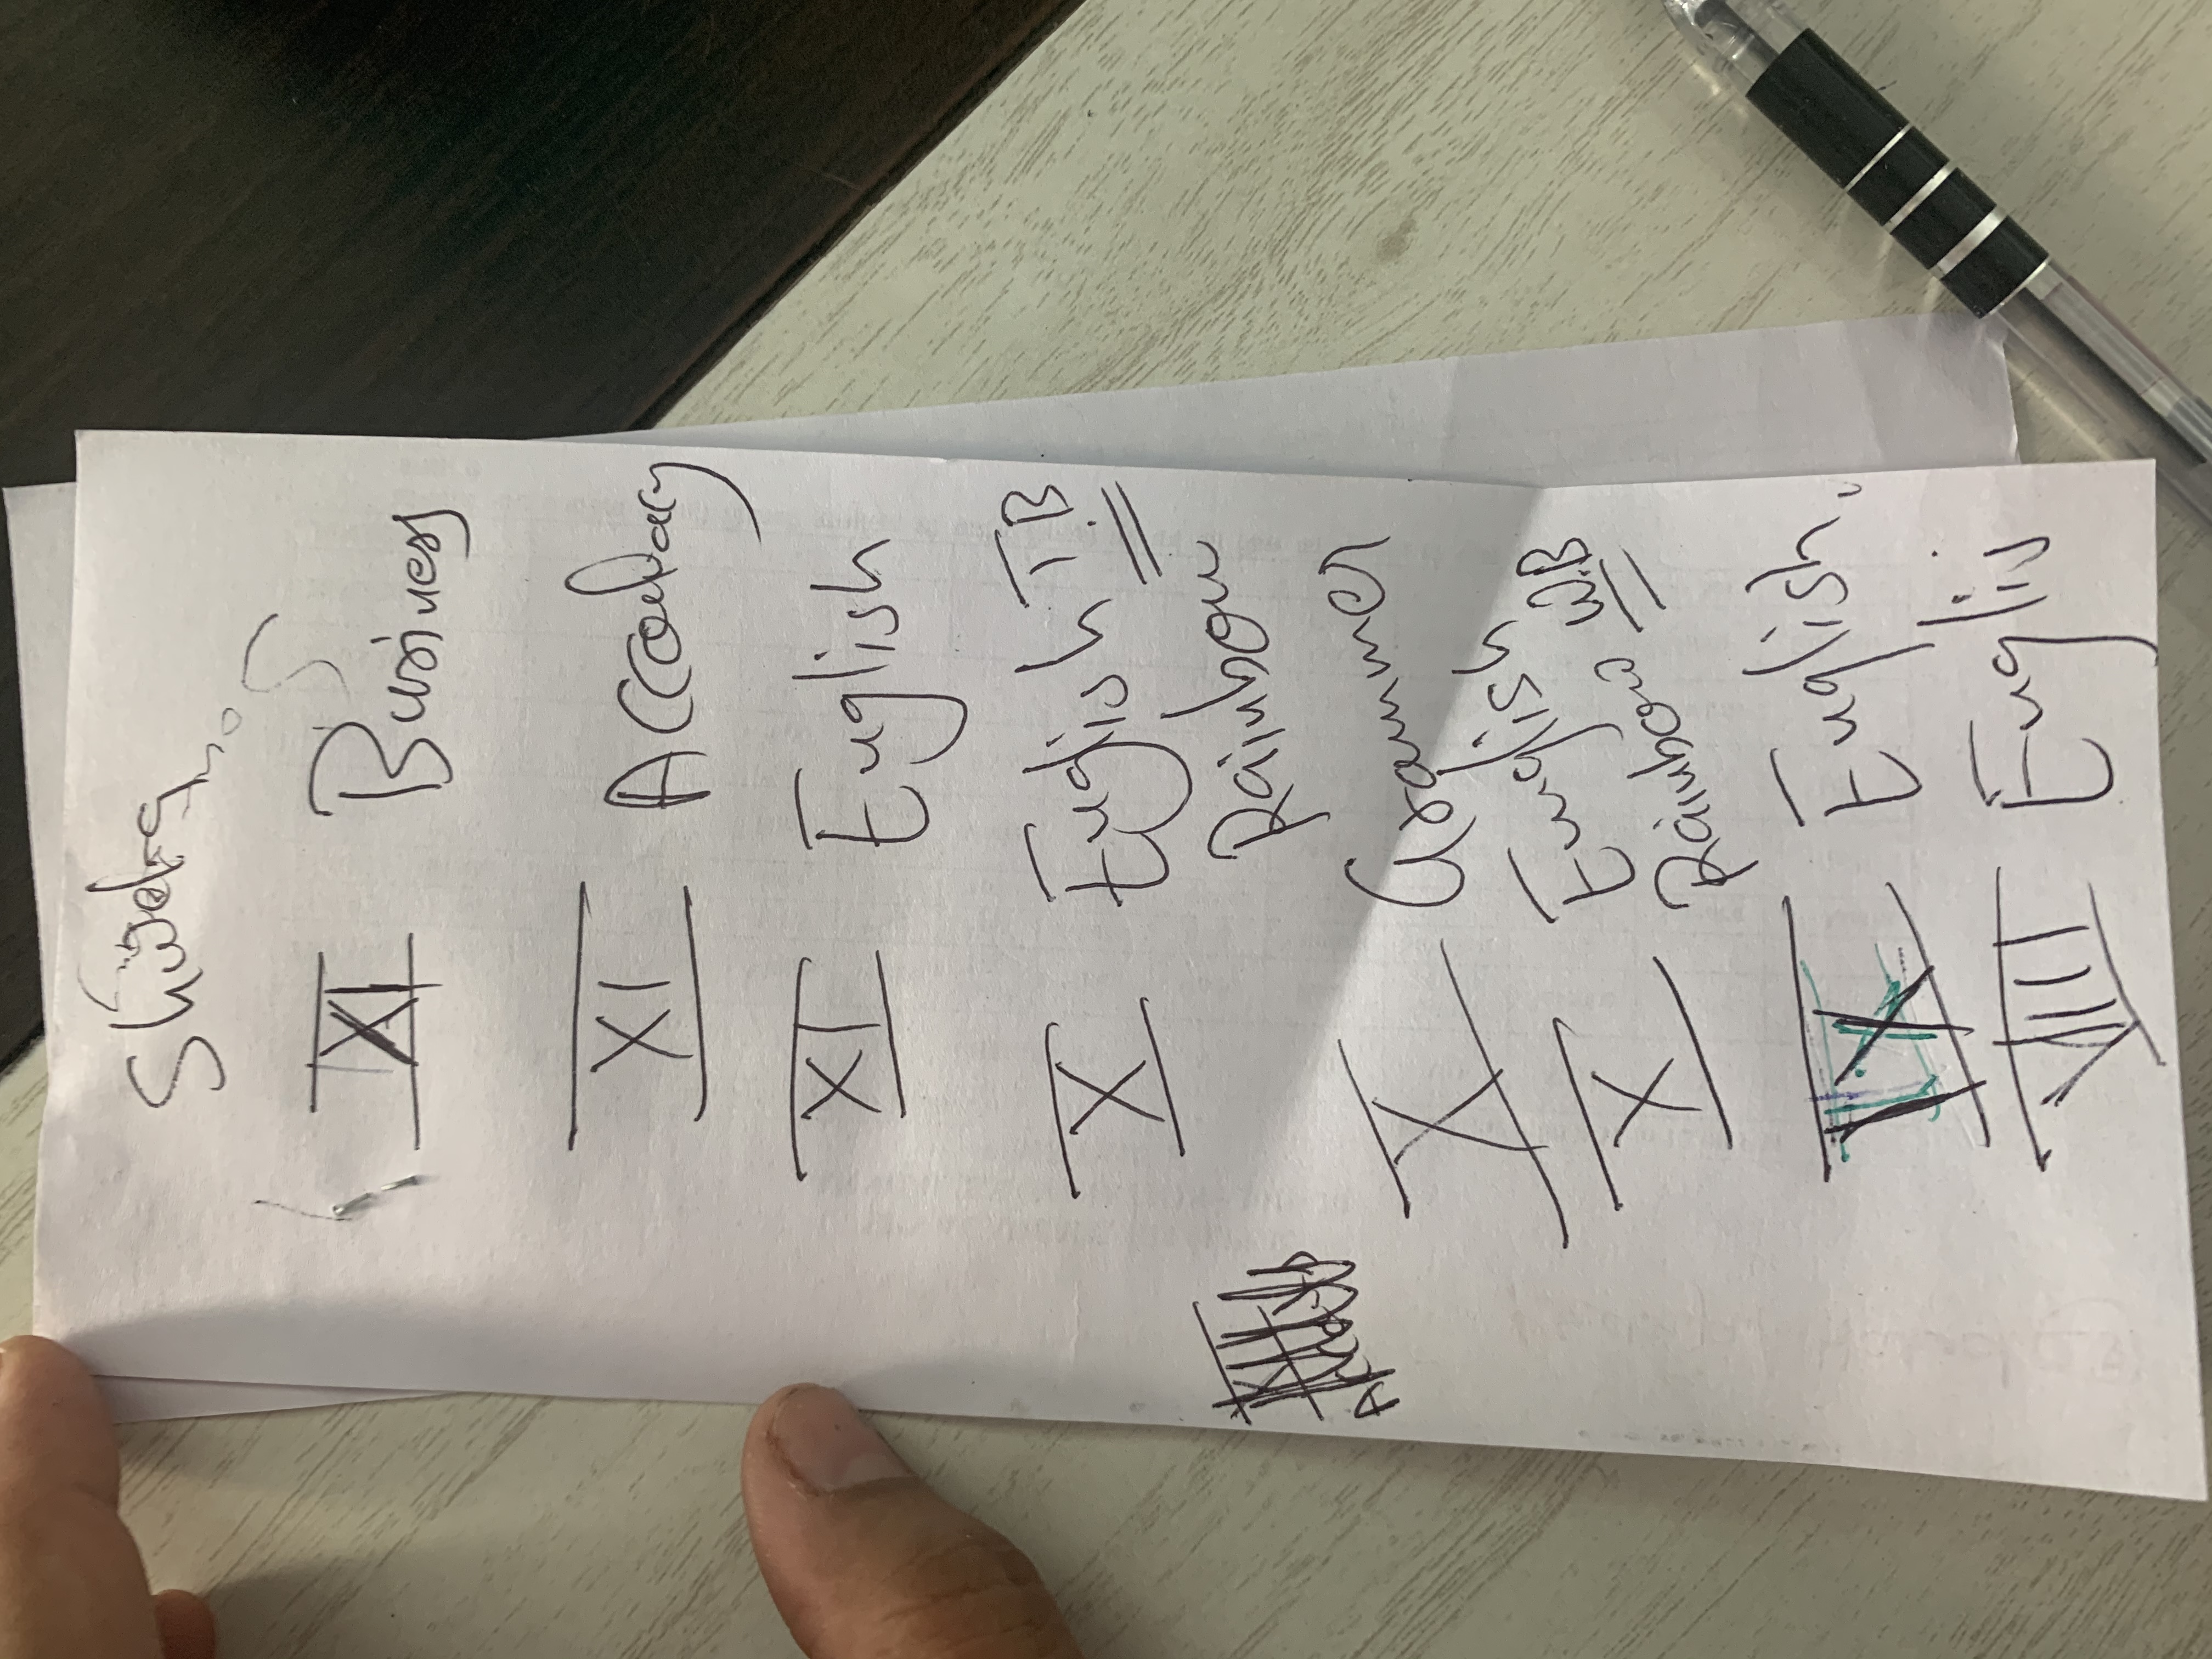 XI Business
XI
XI English
X English T.B
Rainbow
X Grammer
X English
Rainbow W.B
IX English
VIII Englis